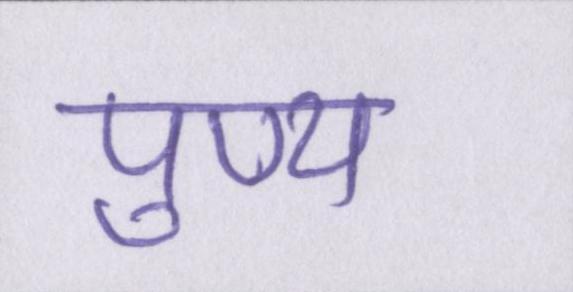 पुण्य